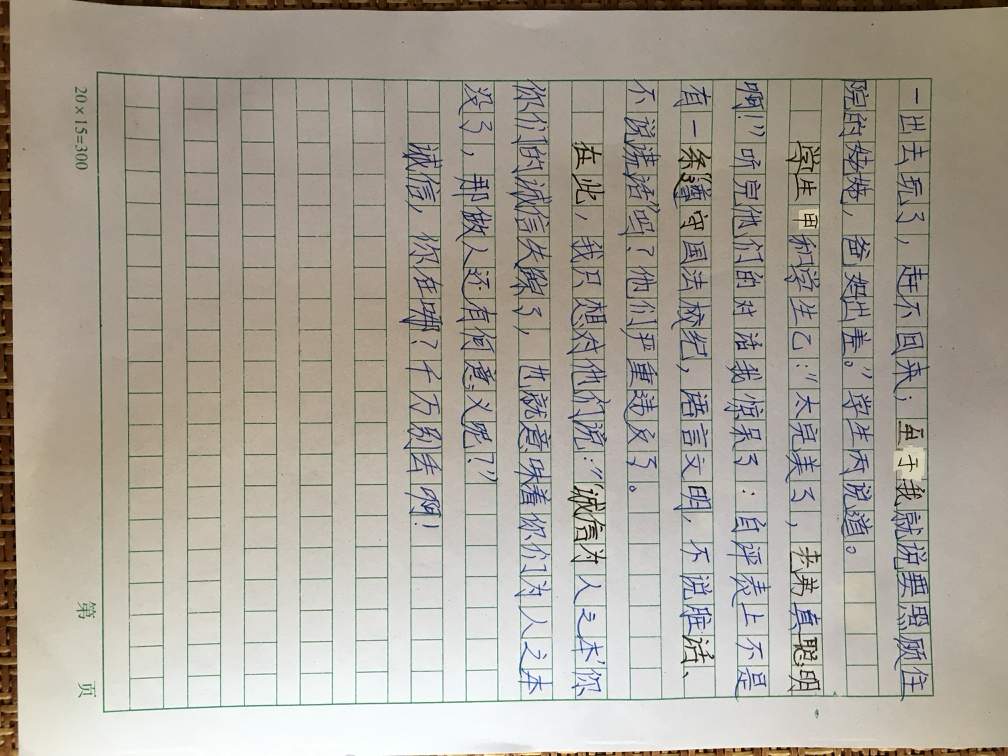 一出去玩了，赶不回来；至于我就说要照顾住
院的姥姥，爸妈出差。”学生丙说道。
学生甲和学生乙：“太完美了，老弟真聪明
啊！”听完他们的对话我惊呆了：自评表上不是
有一条遵守国法校纪，语言文明，不说脏话、
不说谎话吗？他们严重违反了。
在此，我只想对他们说：“诚信为人之本‘你
你们的诚信失踪了，也就意味着你们为人之本
没了，那做人还有何意义呢？”
诚信，你在哪？千万别丢啊！
20×15=300
第 页